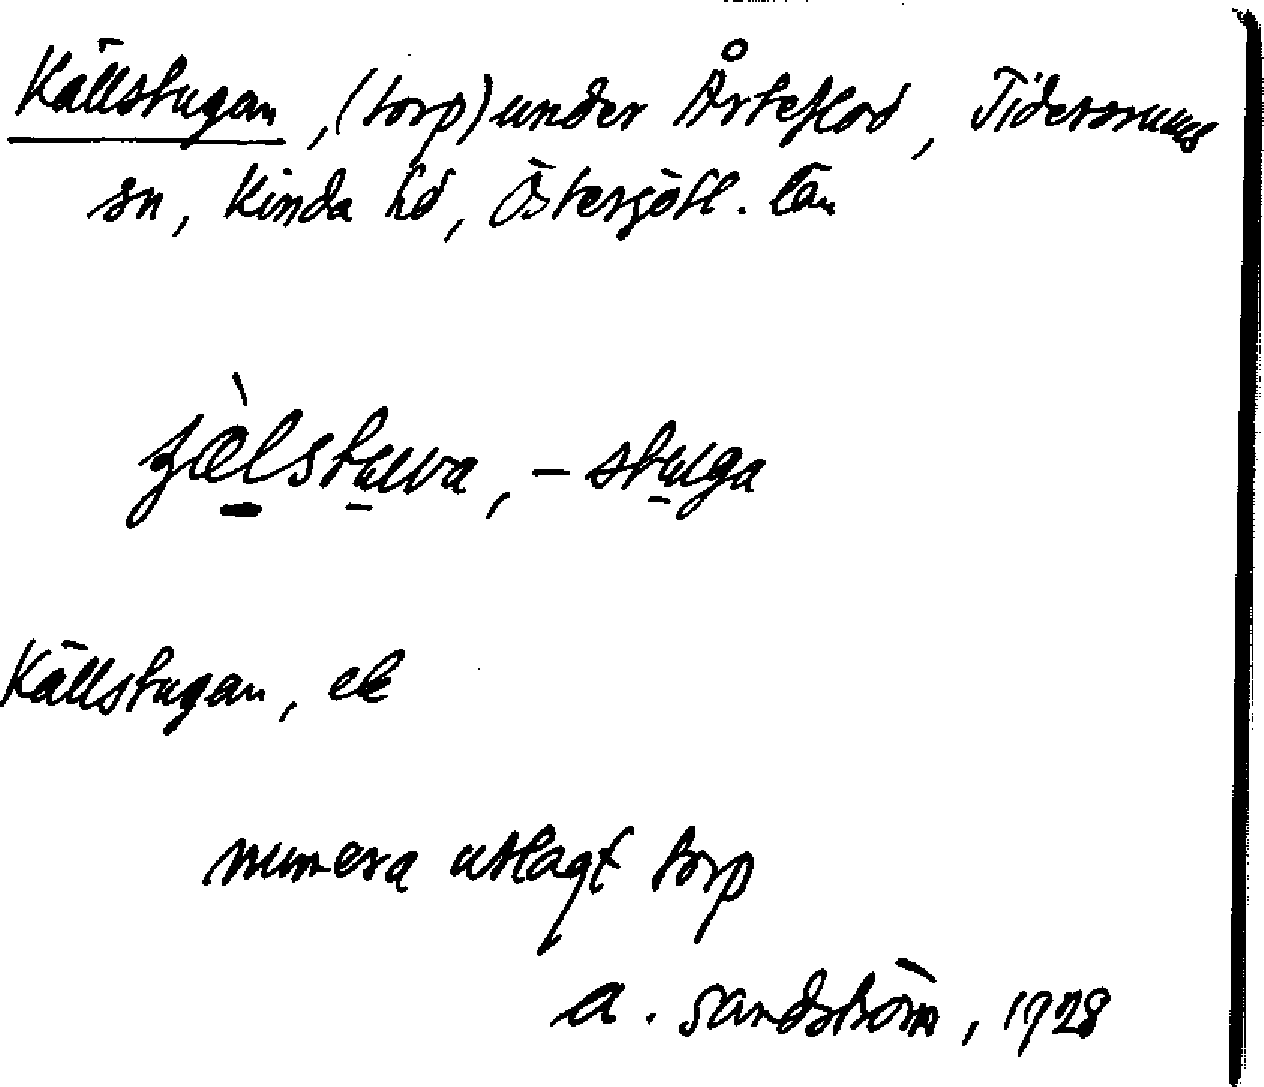 Källstugan, (torp) under Årteflod, Tidersrums
sn, Kinda hd, Östergötl. län
jæ̀lstuva, – stuga
Källstugan, ek
numera utlagt torp
A. Sandström, 1928